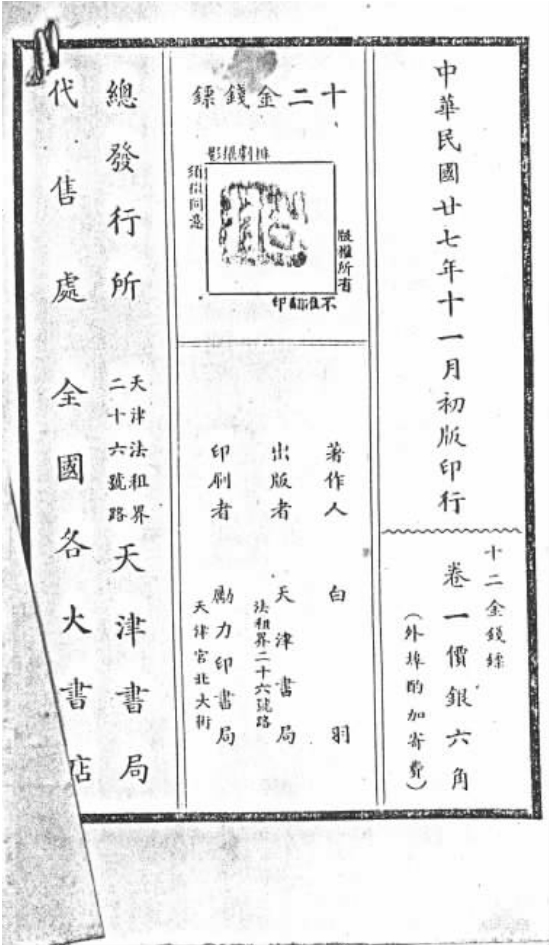 中華民國廿七年十一月初版印行
十二金錢鏢
卷一價銀六角
(外埠酌加寄費)
十二金錢鏢
版權所有
不准翻印
排劇攝影
須徵同意
著作人 白羽
出版者 天津書局
法租界二十六號路
印刷者 勵力印書局
天津宮北大街
總發行所 天津法租界
二十六號路
天津書局
代售處 全國各大書店